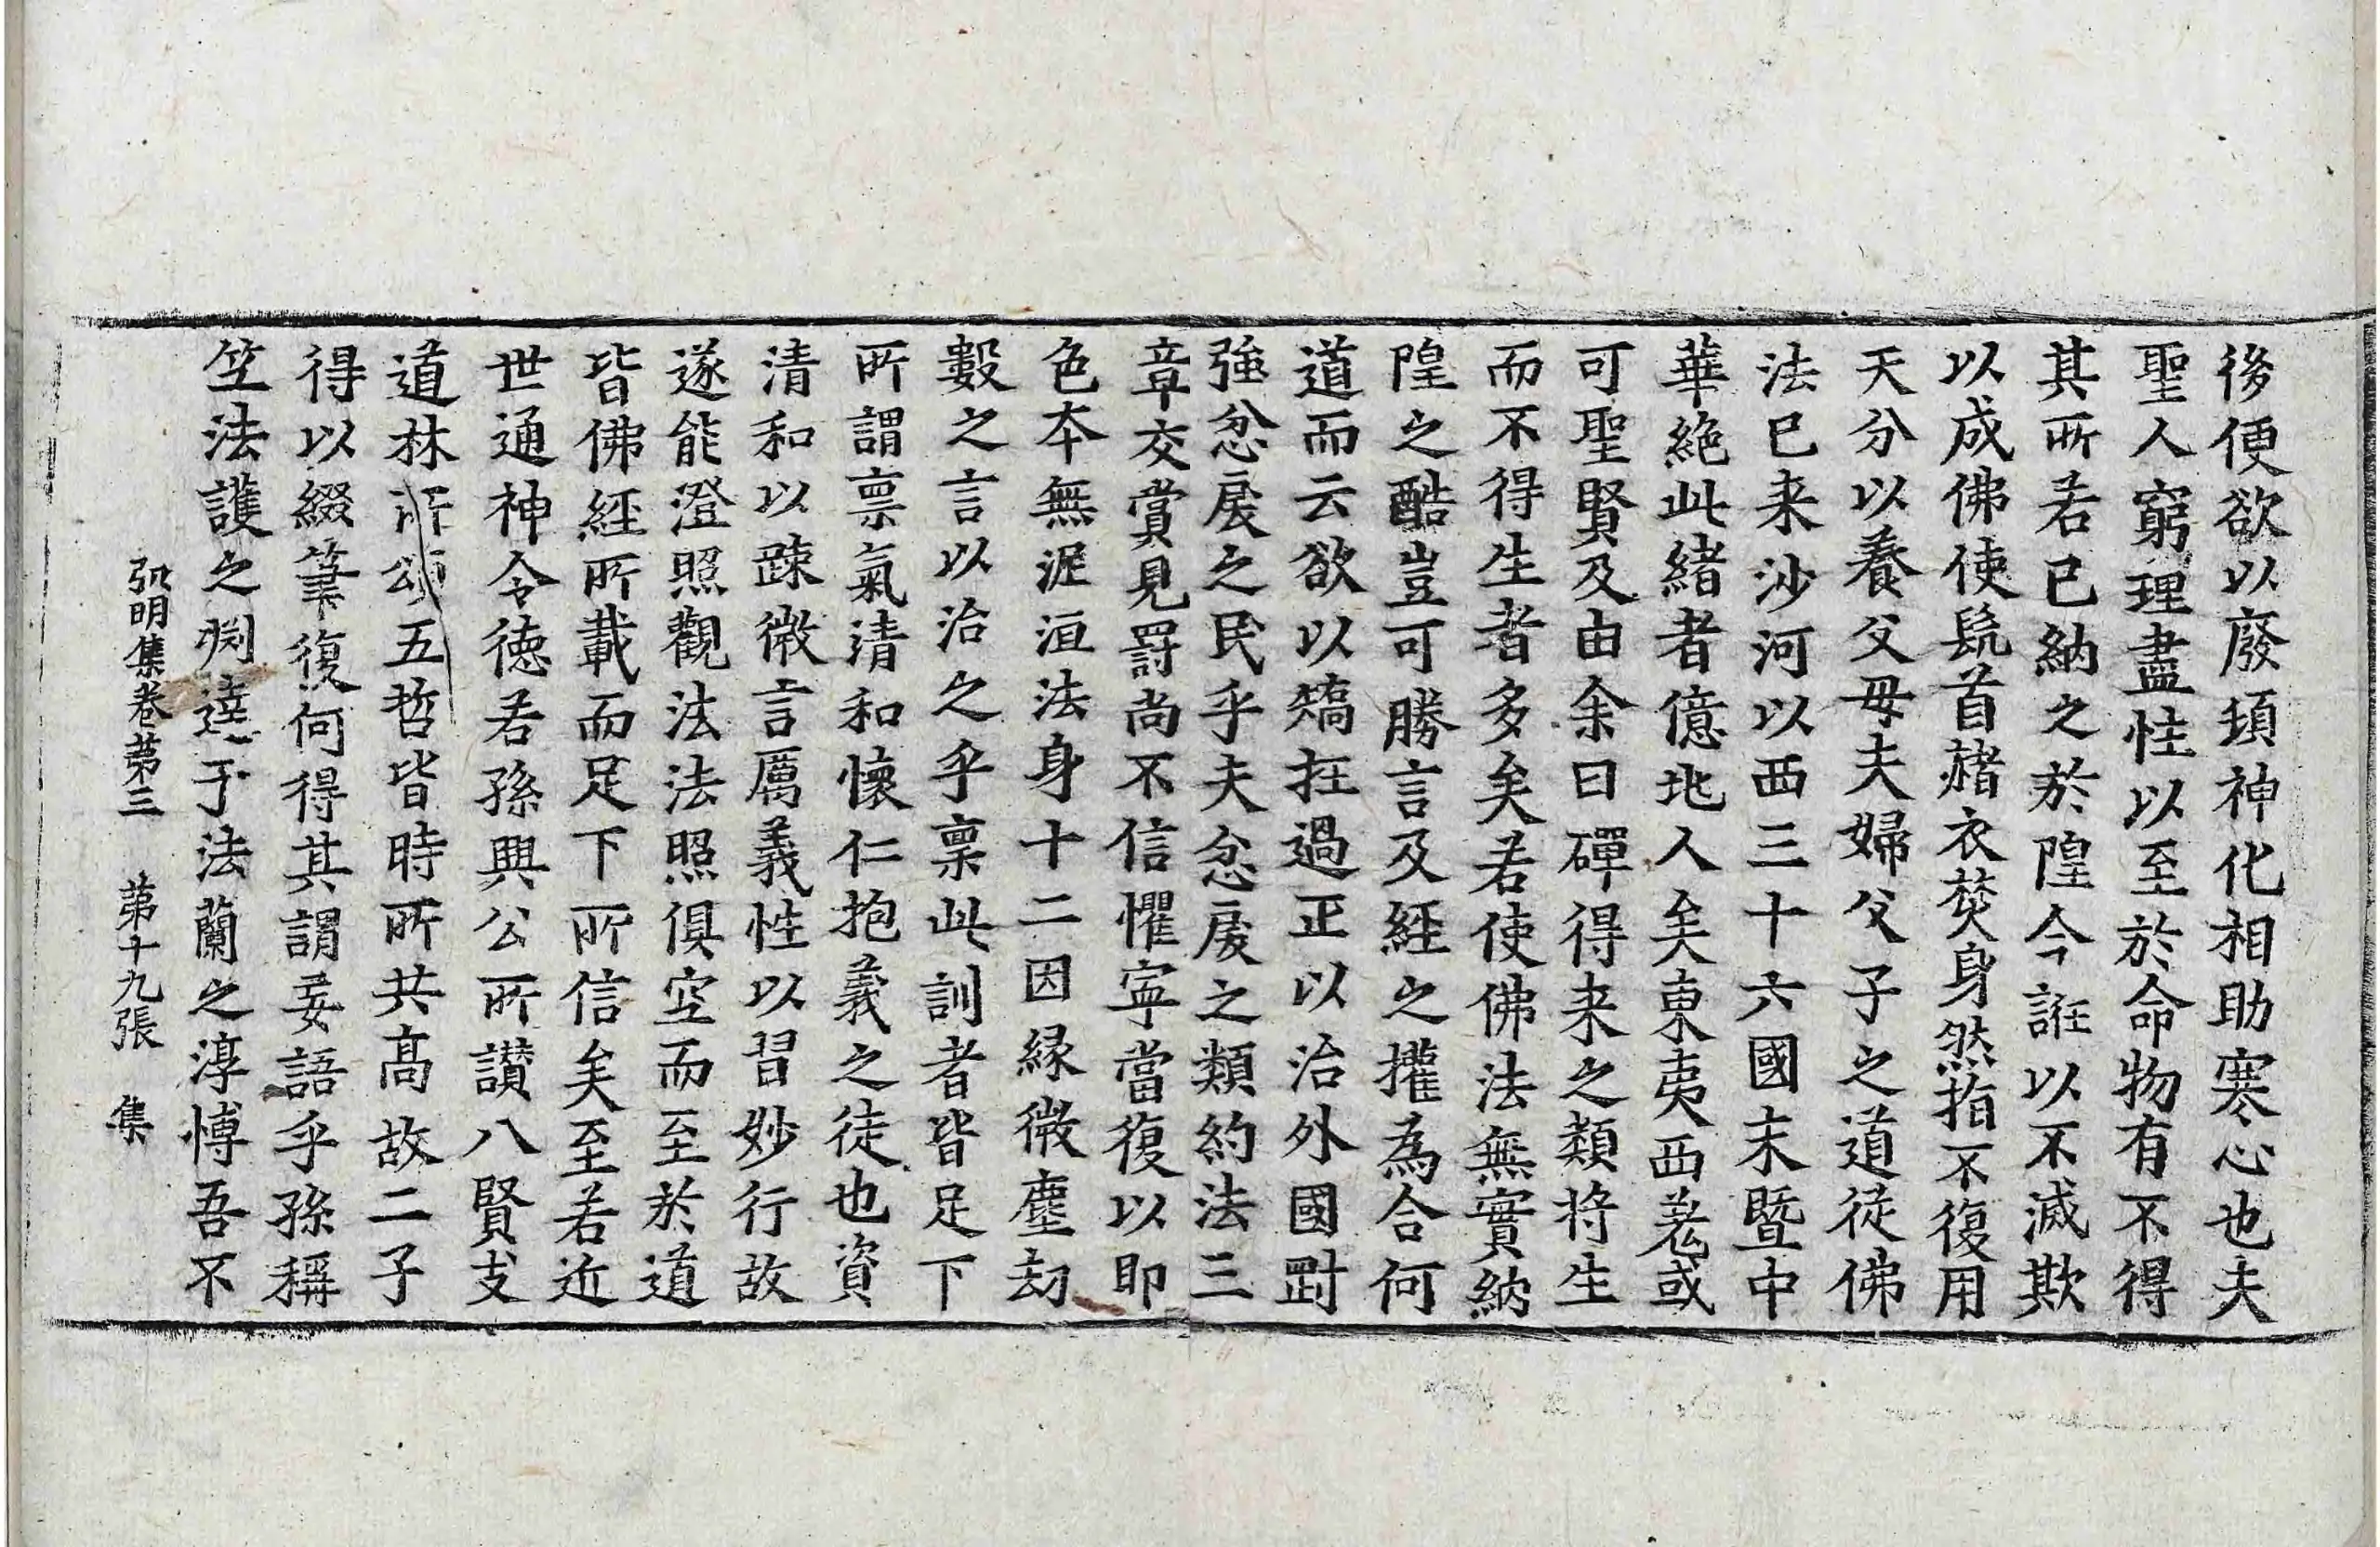 後便欲以廢頊神化相助寒心也夫
聖人窮理盡性以至於命物有不得
其所若已納之於隍今誑以不滅欺
以成佛使髡首赭衣焚身然指不復用
天分以養父母夫婦父子之道從佛
法已来沙河以西三十六國末暨中
華絶此緒者億地人矣東夷西羗或
可聖賢及由余日磾得来之類将生
而不得生者多矣若使佛法無實納
隍之酷豈可勝言及經之攉為合何
道而云欲以矯抂過正以治外國對
強忿戾之民乎夫忿戾之類約法三
章交賞見罸尚不信懼寧當復以即
色本無泥洹法身十二因縁微塵劫
數之言以治之乎禀此訓者皆足下
所謂禀氣清和懷仁抱義之徒也資
清和以踈微言厲義性以習妙行故
遂能澄照觀法法照俱空而至於道
皆佛經所載而足下所信矣至若近
世通神令徳若孫興公所讃八賢支
道林所頌五哲皆時所共髙故二子
得以綴筆復何得其謂妄語乎孫稱
竺法護之渕達于法蘭之淳博吾不
弘明集卷苐三 苐十九張 集